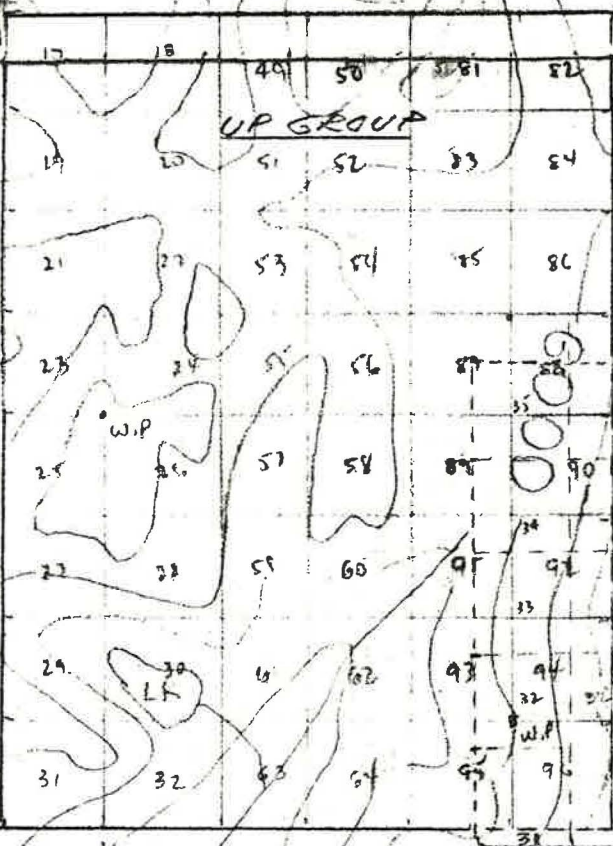 17 18 49 50 81 82
UP GROUP
19 20 51 52 83 84
21 22 53 54 85 86
23 24 55 56 87 88
35
W.P
25 26 57 58 89 90
34
27 28 59 60 91 92
33
29 30 61 62 93 94
LK 32
W.P
31 32 63 64 95 96
31